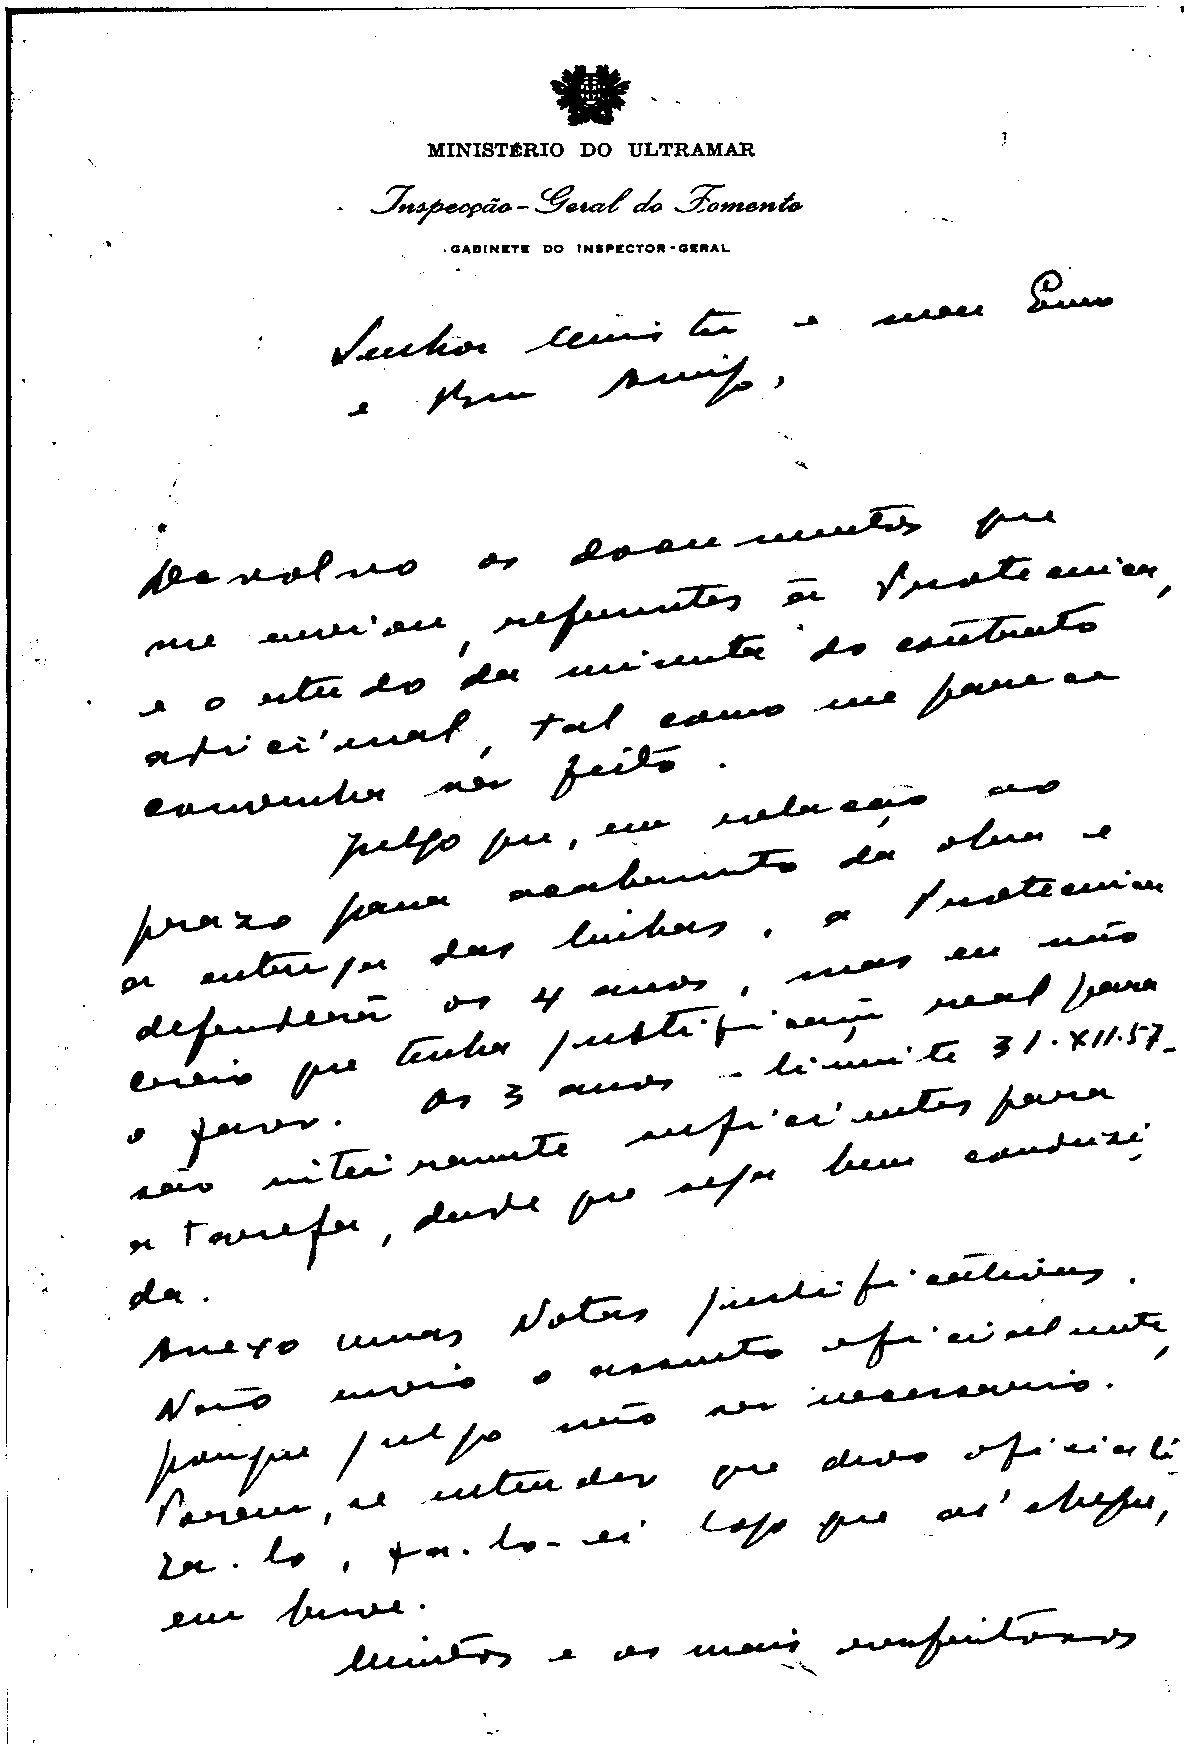 MINISTÉRIO DO ULTRAMAR
Inspecção-Geral do Fomento
GABINETE DO INSPECTOR-GERAL
Senhor Ministro e meu Exmo
e Bom Amigo,
Devolvo os documentos que
me enviou, referentes à
e o estudo da minuta do contrato
adicional, tal como me parece
convinha ser feito.
Julgo que, em relação ao
prazo para acabamento da obra e
a entrega das linhas, a
defenderá os 4 anos, mas eu não
creio que tenha justificação real para
o favor. Os 3 anos - limite 31.XII.57-
são inteiramente suficientes para
a tarefa, desde que seja bem conduzi
da.
Anexo umas Notas justificativas.
Não envio o assunto oficialmente,
porque julgo não ser necessario.
Porem, se entender que devo oficiali
za-lo, fa-lo-ei logo que aí chegue,
em breve.
Muitos e os mais